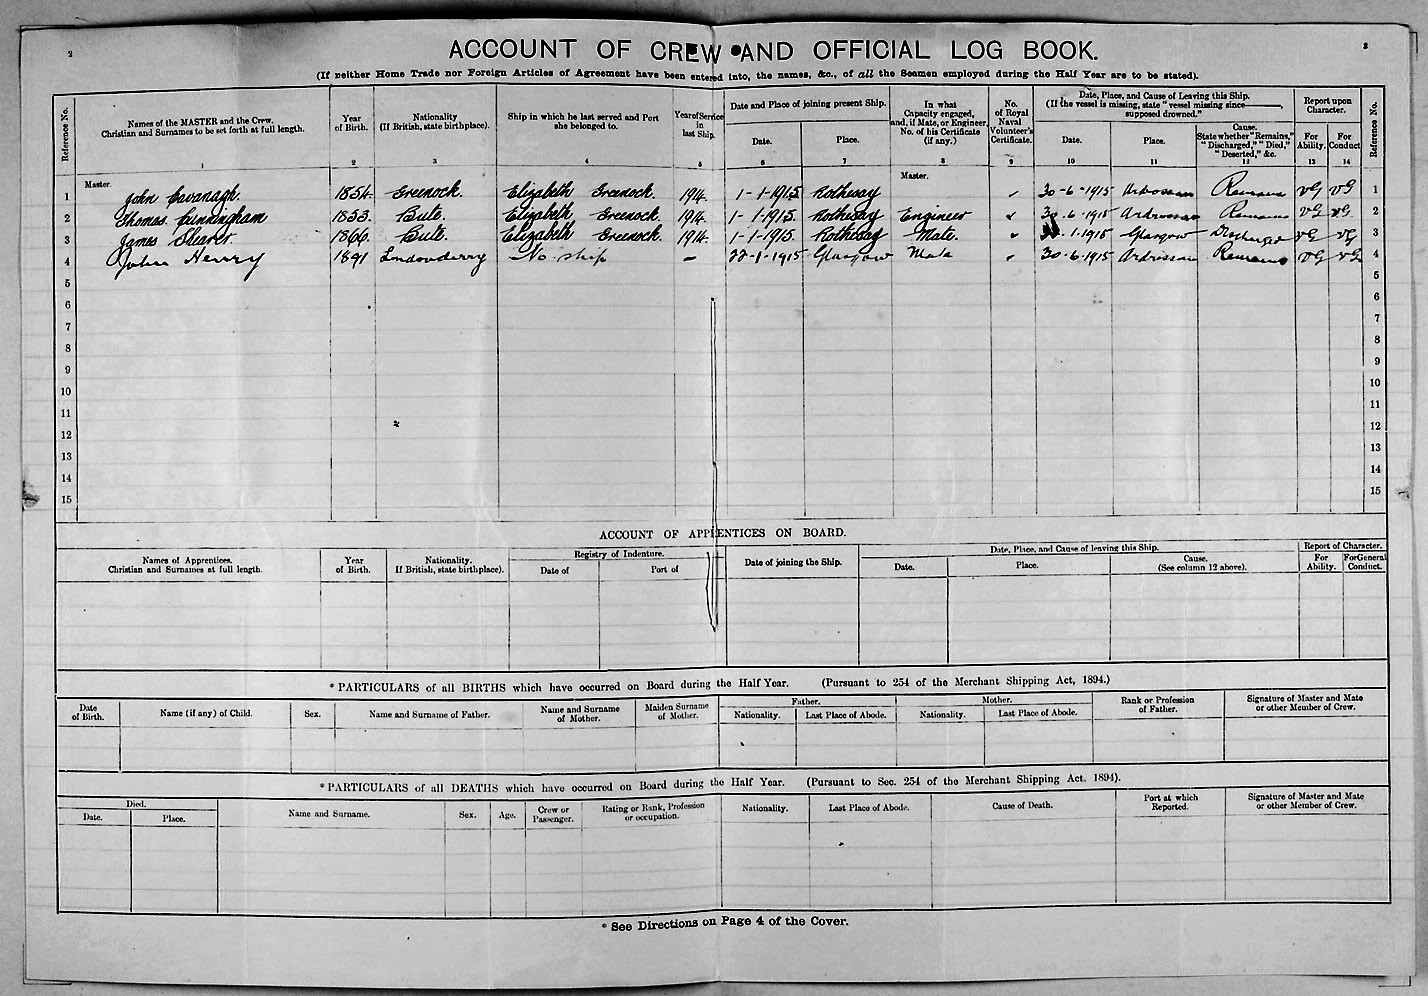 2
ACCOUNT OF CREW AND OFFICIAL LOG BOOK.
3
(If neither Home Trade nor Foreign Articles of Agreement have been entered into, the names, &c., of all the Seamen employed during the Half Year are to be stated).
Reference No. Names of the MASTER and the Crew. Christian and Surnames to be set forth at full length. 1 Year of Birth. 2 Nationality (If British, state birthplace). 3 Ship in which he last served and Port she belonged to. 4 Year of Service in last Ship. 5 Date and Place of joining present Ship. Date. 6 Place. 7 In what Capacity engaged, and, if Mate, or Engineer, No. of his Certificate (if any.) 8 No. of Royal Naval Volunteer's Certificate. 9 Date, Place, and Cause of Leaving this Ship. (If the vessel is missing, state "vessel missing since———, supposed drowned." Date. 10 Place. 11 Cause. State whether "Remains," "Discharged," "Died," "Deserted," &c. 12 Report upon Character. For Ability. 13 For Conduct 14 Reference No.
Master. Master.
1 John Cavanagh. 1854. Greenock. Elizabeth Greenock. 1914. 1-1-1915 Rothesay 30-6-1915 Ardrossan Remains VG VG 1
2 Thomas Cunningham 1853. Bute. Elizabeth Greenock. 1914. 1-1-1915. Rothesay Engineer 30.6.1915 Ardrossan Remains VG VG 2
3 James Shearer. 1866. Bute. Elizabeth Greenock. 1914. 1-1-1915. Rothesay Mate. .1.1915 Glasgow Discharged VG VG 3
4 John Henry 1891 Londonderry No ship — 22-1-1915 Glasgow Mate 30.6.1915 Ardrossan Remains VG VG 4
5 5
6 6
7 7
8 8
9 9
10 10
11 11
12 12
13 13
14 14
15 15
ACCOUNT OF APPRENTICES ON BOARD.
Names of Apprentices. Christian and Surnames at full length. Year of Birth. Nationality. If British, state birthplace). Registry of Indenture. Date of Port of Date of joining the Ship. Date, Place, and Cause of leaving this Ship. Date. Place. Cause. (See column 12 above). Report of Character. For Ability. For General Conduct.
* PARTICULARS of all BIRTHS which have occurred on Board during the Half Year. (Pursuant to 254 of the Merchant Shipping Act, 1894.)
Date of Birth. Name (if any) of Child. Sex. Name and Surname of Father. Name and Surname of Mother. Maiden Surname of Mother. Father. Nationality. Last Place of Abode. Mother. Nationality. Last Place of Abode. Rank or Profession of Father. Signature of Master and Mate or other Member of Crew.
* PARTICULARS of all DEATHS which have occurred on Board during the Half Year. (Pursuant to Sec. 254 of the Merchant Shipping Act. 1894).
Died. Date. Place. Name and Surname. Sex. Age. Crew or Passenger. Rating or Rank, Profession or occupation. Nationality. Last Place of Abode. Cause of Death. Port at which Reported. Signature of Master and Mate or other Member of Crew.
* See Directions on Page 4 of the Cover.